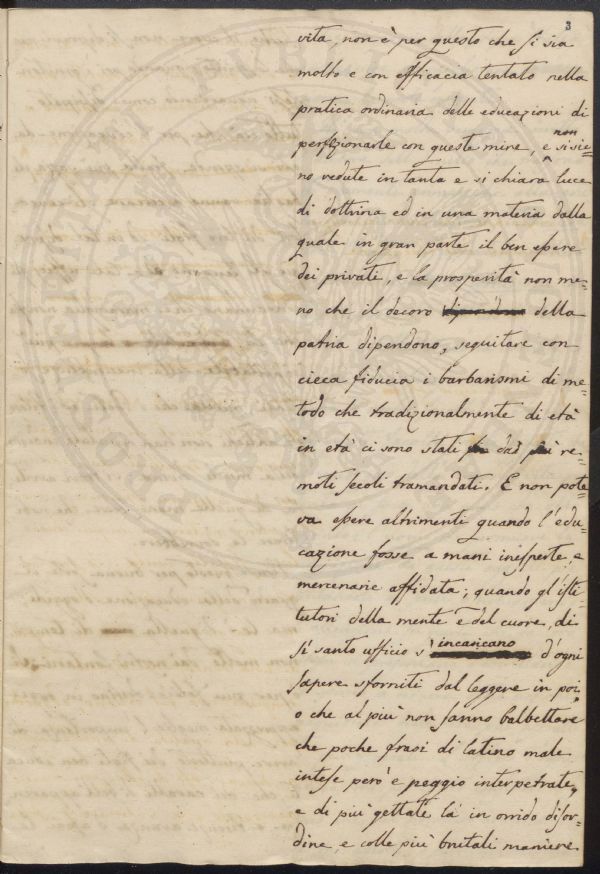 3
vita, non è per questo che si sia
molto e con efficacia tentato nella
pratica ordinaria delle educazioni di
perfezionarle con queste mire, e non si sie=
no vedute in tanta e si chiara luce
di dottrina ed in una materia dalla
quale in gran parte il ben essere
dei privati, e la prosperità non me=
no che il decoro dipendono della
patria dipendono, seguitare con
cieca fiducia i barbarismi di me=
todo che tradizionalmente di età
in età ci sono stati dai più re=
moti secoli tramandati. E non pote=
va essere altrimenti quando l'edu=
cazione fosse a mani inesperte, e
mercenarie affidata; quando gl'isti=
tutori della mente e del cuore, di
sì santo ufficio s'incaricano d'ogni
sapere sforniti dal leggere in poi,
o che al più non sanno balbettare
che poche frasi di latino male
intese però e peggio interpetrate,
e di più gettate là in orrido disor=
dine, e colle più brutali maniere